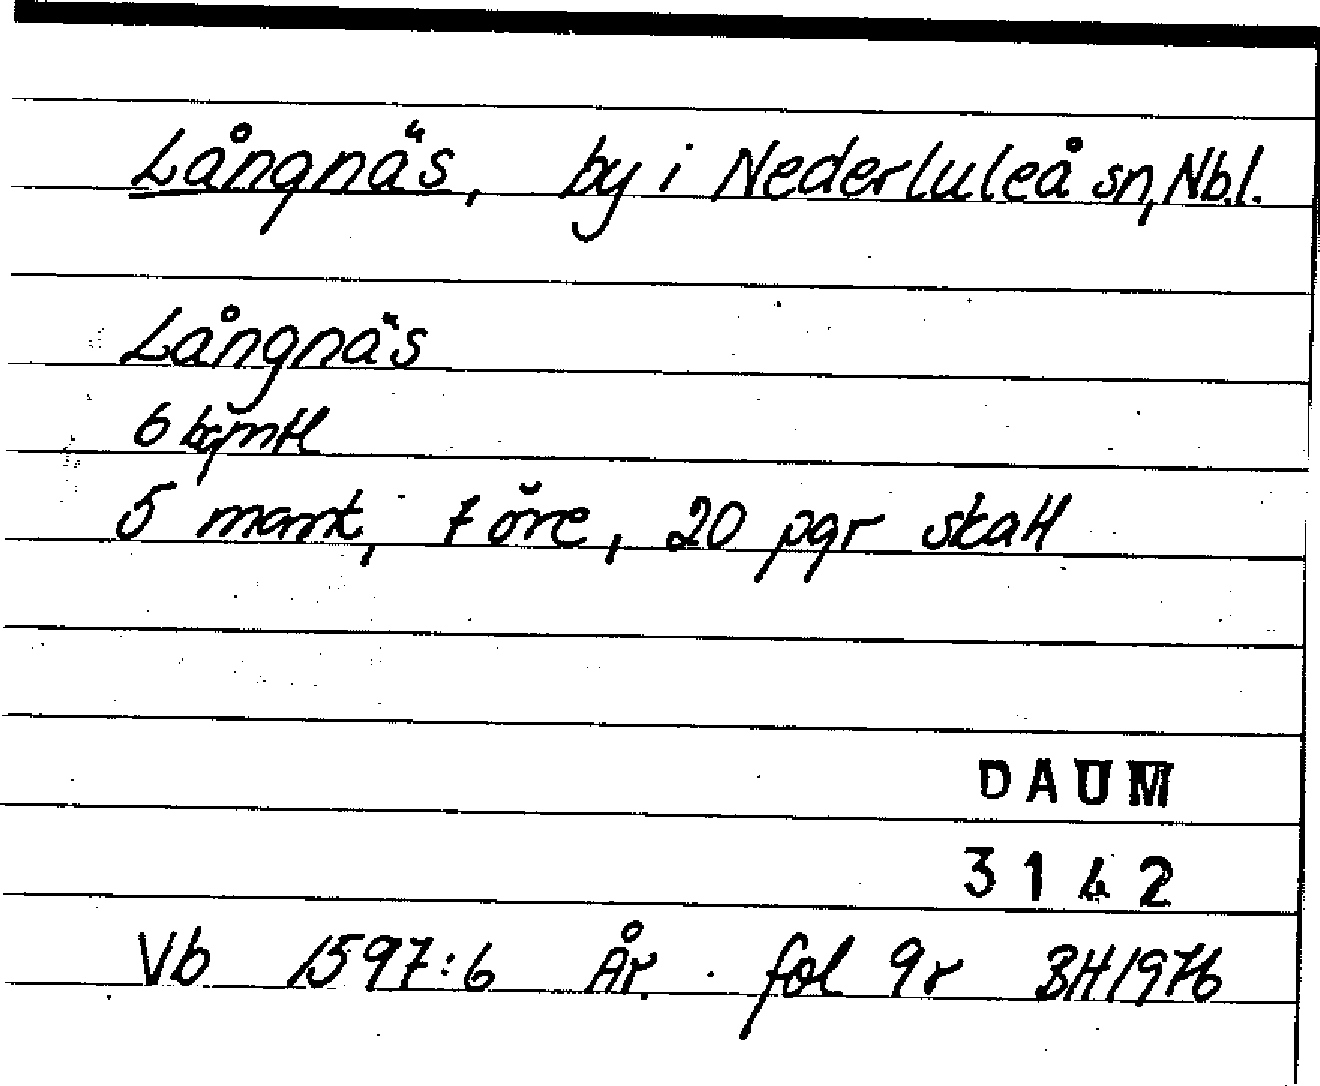 Långnäs, by i Nederluleå sn, Nb.l.
Långnäs
6 bg̃mtl
5 mark, 7 öre, 20 pgr skatt
DAUM
3142
Vb 1597:6 År. fol 9r BH1976